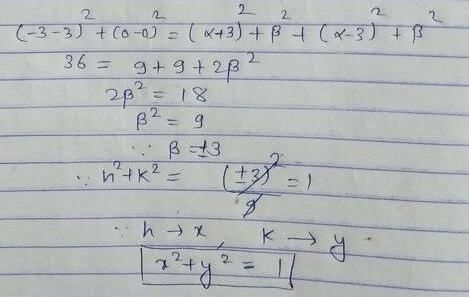 (-3-3)² + (0-0)² = (α+3)² + β² + (α-3)² + β²
36 = 9 + 9 + 2β²
2β² = 18
β² = 9
∵ β = ±3
∵ h² + k² = (±3)²/9 = 1
∵ h → x, k → y
x² + y² = 1